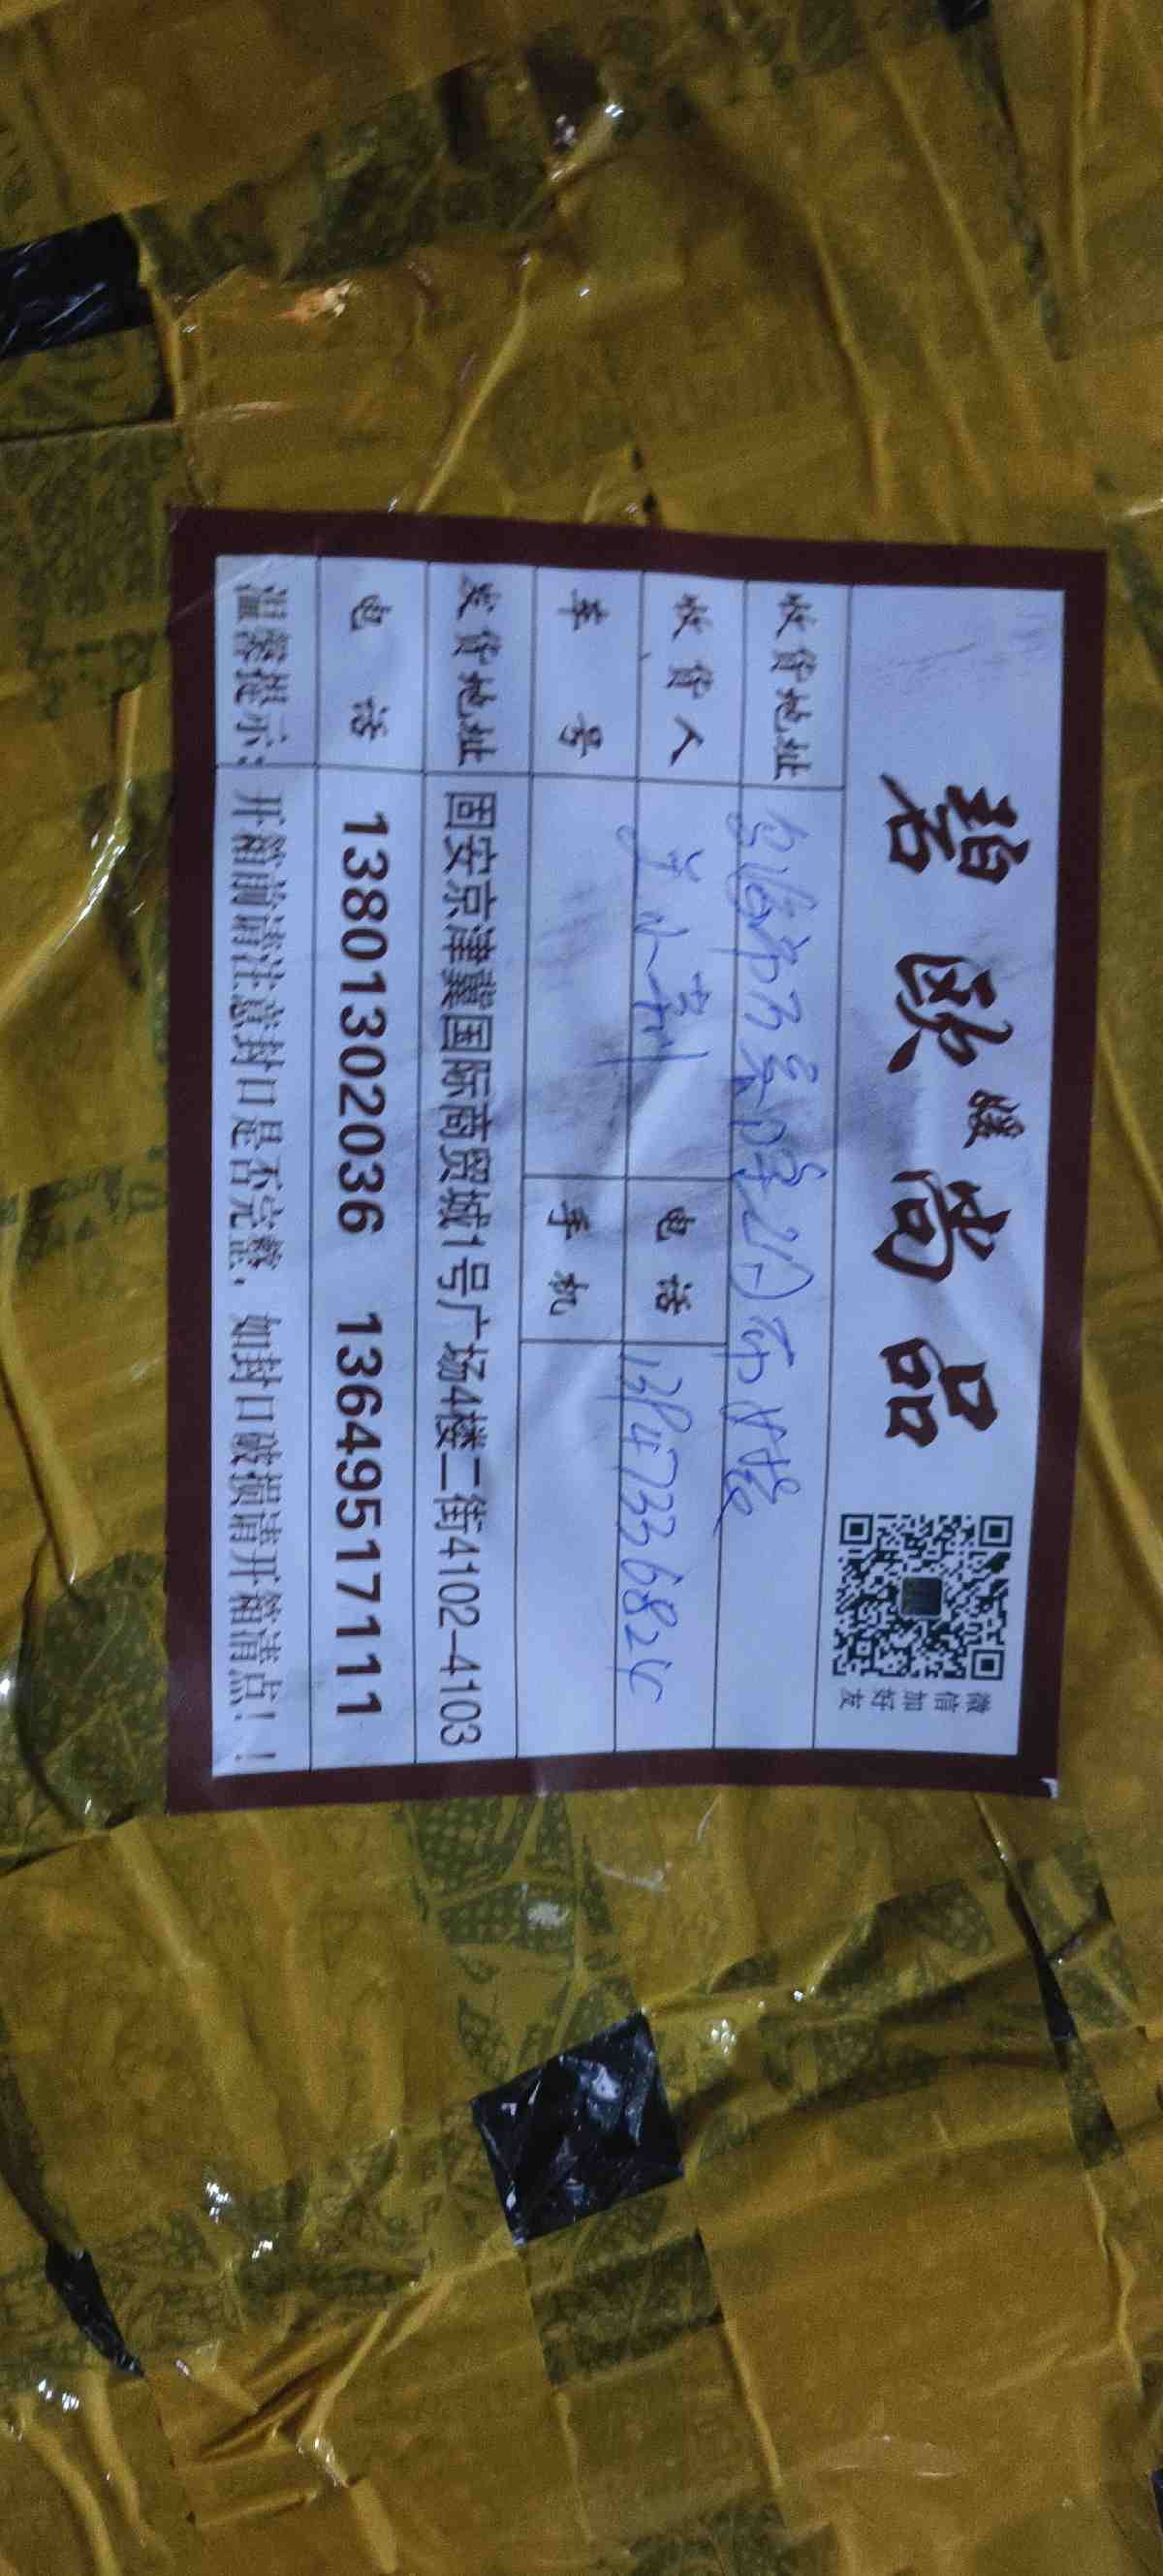 碧欧尚品
媛
微信加好友
收货地址
收货人 电话 13947336824
车号 手机
发货地址 固安京津冀国际商贸城1号广场4楼二街4102-4103
电话 13801302036 13649517111
温馨提示： 开箱前请注意封口是否完整，如封口破损请开箱清点！！